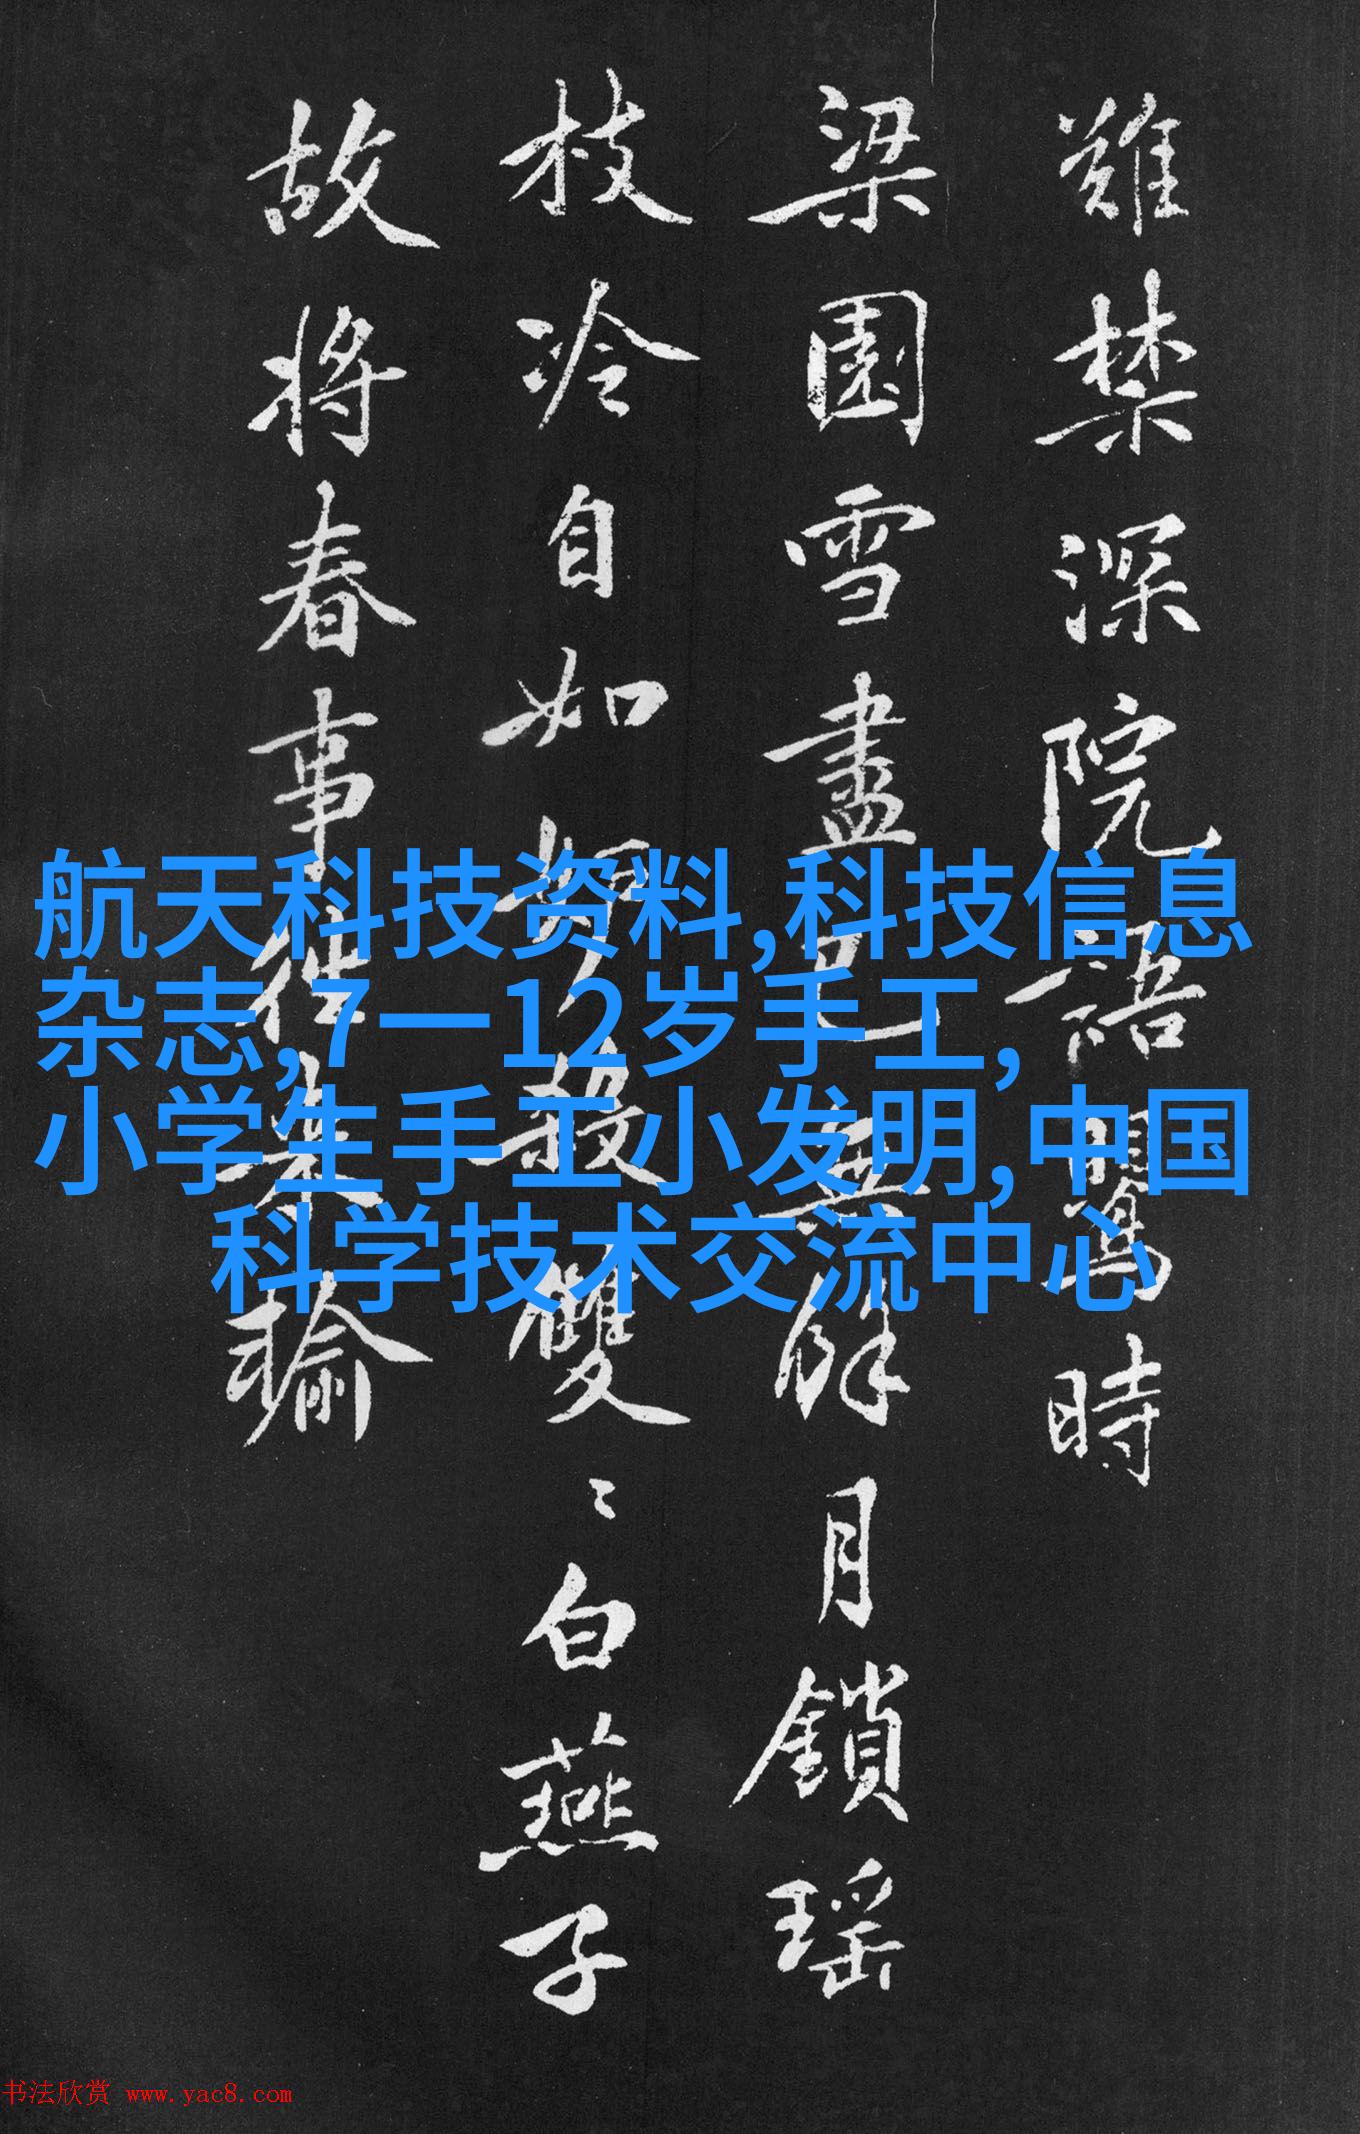 难禁深院語鶯時
梁園雪盡已無餘月鎖瑶
枝冷自如
雙〻白燕子
故将春事
瑜
航天科技资料,科技信息
杂志,7一12岁手工,
小学生手工小发明,中国
科学技术交流中心
书法欣赏 www.yac8.com